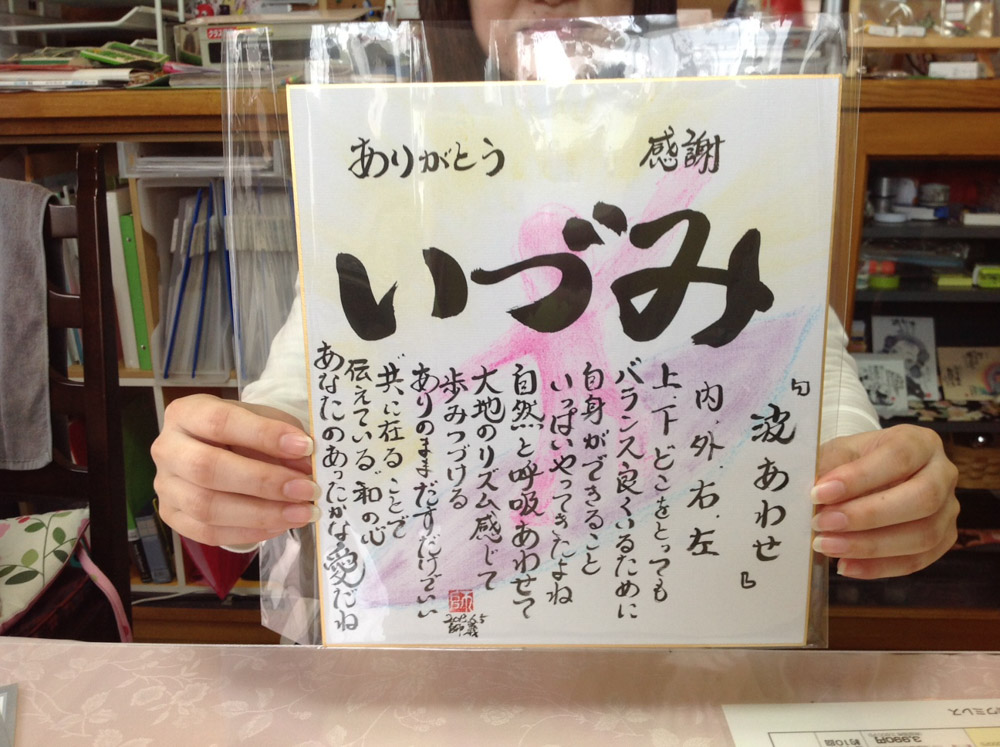 感謝
ありがとう
いづみ
『波あわせ』
内、外、右、左
上、下どこをとっても
バランス良くいるために
自身ができること
いっぱいやってきたよね
自然と呼吸あわせて
大地のリズム感じて
歩みつづける
ありのままだすだけでいい
"共に在る"ことで
伝えている"和"の心
あなたのあったかな愛だね
3,990円
約10回